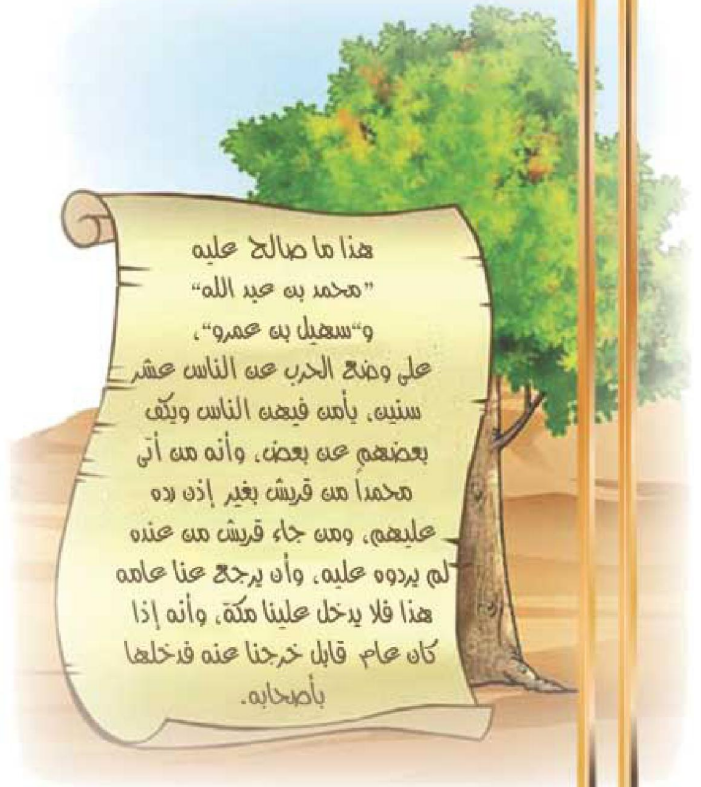 هذا ما صالح عليه
”محمد بن عبد الله“
و“سهيل بن عمرو“،
على وضع الحرب عن الناس عشر
سنين، يأمن فيهن الناس ويكف
بعضهم عن بعض، وأنه من أتى
محمداً من قريش بغير إذن رده
عليهم، ومن جاء قريش من عنده
لم يردوه عليه، وأن يرجع عنا عامه
هذا فلا يدخل علينا مكة، وأنه إذا
كان عام قابل خرجنا عنه فدخلها
بأصحابه.